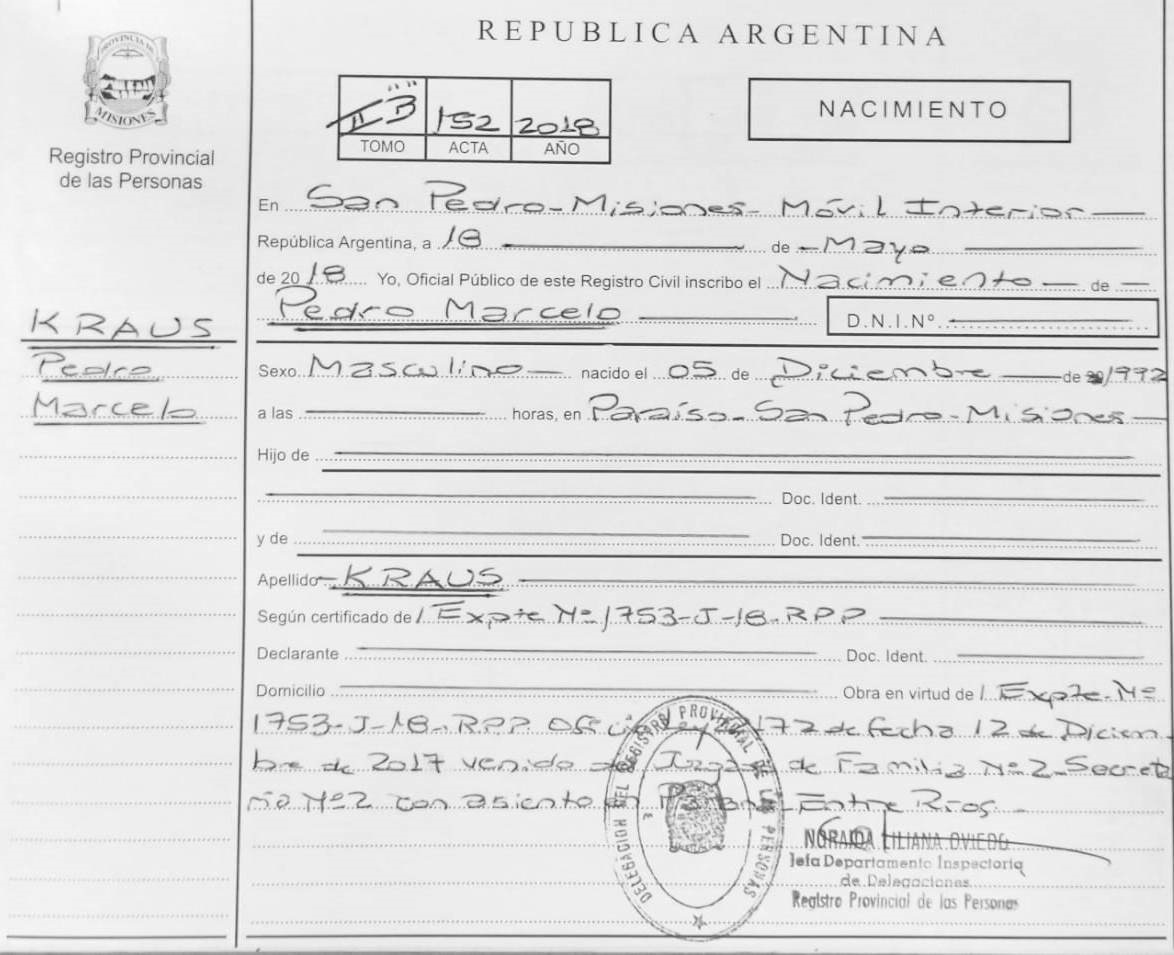 REPUBLICA ARGENTINA
PROVINCIA DE
MISIONES
Registro Provincial
de las Personas
II "B" 152 2018
TOMO ACTA AÑO
NACIMIENTO
KRAUS
Pedro
Marcelo
En San Pedro-Misiones- Móvil Interior
República Argentina, a 18 de Mayo
de 2018 Yo, Oficial Público de este Registro Civil inscribo el Nacimiento de
Pedro Marcelo D.N.I.Nº
Sexo Masculino nacido el 05 de Diciembre de 1992
a las horas, en Paraíso-San Pedro-Misiones
Hijo de
Doc. Ident.
y de Doc. Ident.
Apellido KRAUS
Según certificado de Expte Nº 1753-J-18-RPP
Declarante Doc. Ident.
Domicilio Obra en virtud de Expte. Nº
1753-J-18-RPP. 172 de fecha 12 de Diciem
bre de 2017 venido de Familia Nº2-Secreta
ría Nº2 con asiento en Entre Ríos.-
DELEGACION DEL REGISTRO PROVINCIAL DE LAS PERSONAS
NORAIDA LILIANA OVIEDO
Jefa Departamento Inspectoria
de Delegaciones
Registro Provincial de las Personas